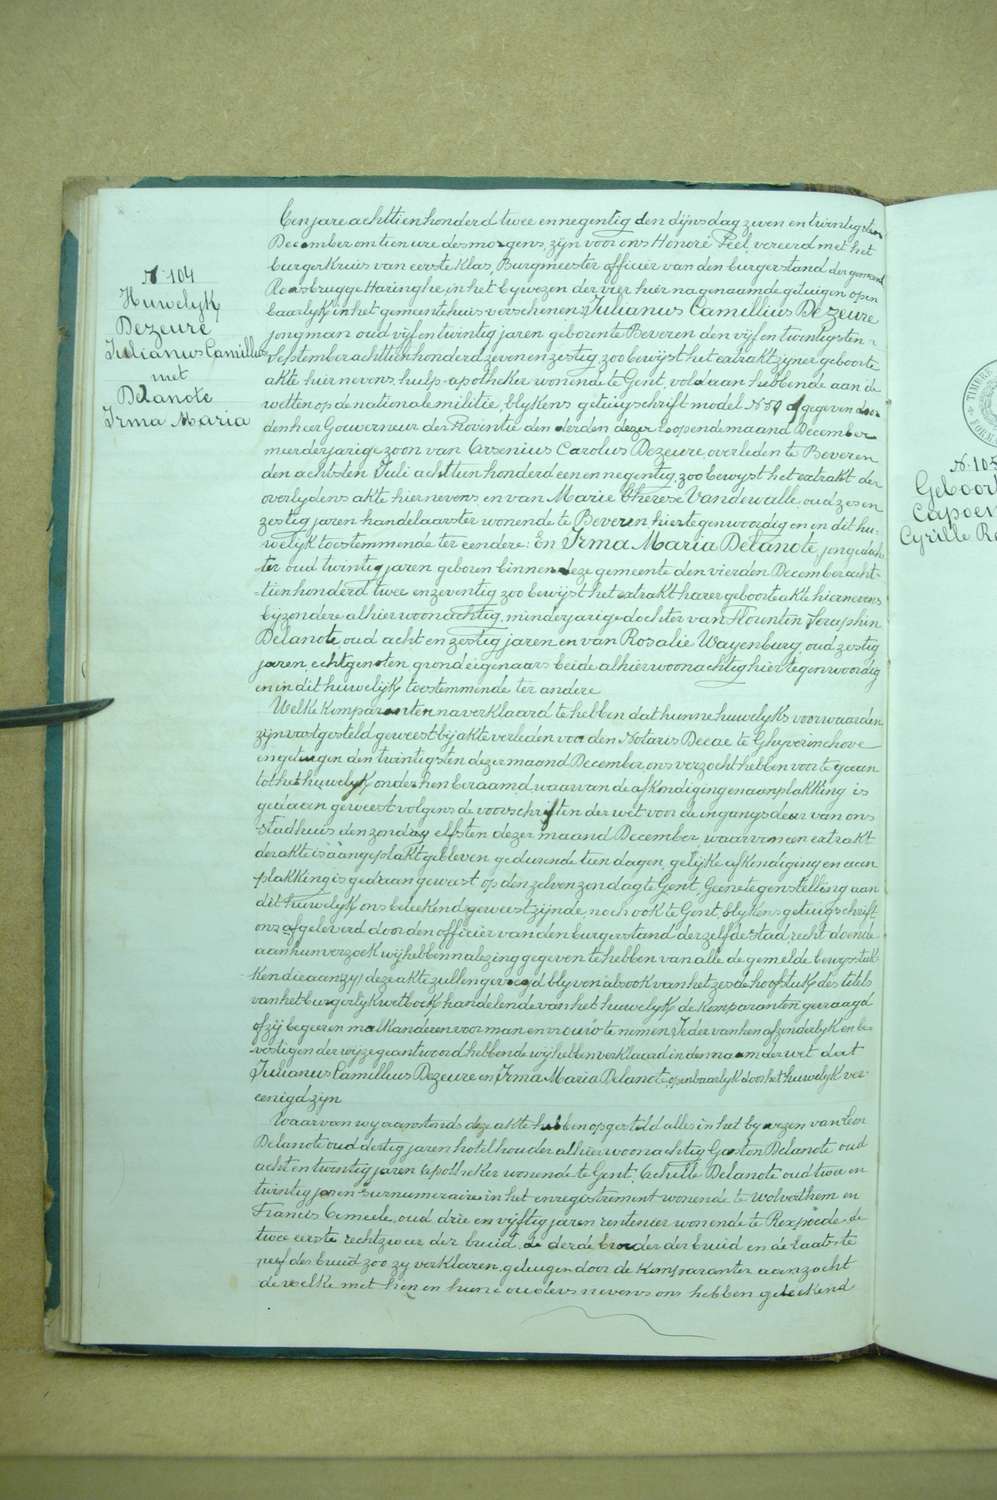 N. 104
Huwelyk
Dezeure
Julianus Camillus
met
Delanote
Irma Maria
Ten jare achttien honderd twee en negentig den dijnsdag zeven en twintigsten
December om tien ure des morgens, zijn voor ons Honoré Feel, vereerd met het
burgerkruis van eerste klas, Burgmeester officier van den burgerstand der gemeente
Rousbrugge Haringhe in het bywezen der vier hier nagenaamde getuigen open
baarlyk in het gemeentehuis verschenen: Julianus Camillius Dezeure
jongman oud vijf en twintig jaren geboren te Beveren den vijf en twintigsten
September achttien honderd zeven en zestig, zoo bewijst het extrakt zyner geboorte
akte hiernevens, hulp-apotheker wonende te Gent, voldaan hebbende aan de
wetten op de nationale militie, blykens getuigschrift model N. 50 gegeven door
den heer Gouverneur der Provintie den derden dezer loopende maand December
meerderjarige zoon van Arsenius Carolus Dezeure, overleden te Beveren
den achtsten Juli achttien honderd een en negentig, zoo bewyst het extrakt der
overlydens akte hiernevens en van Marie Therese Vandewalle, oud zes en
zestig jaren handelaarster wonende te Beveren hier tegenwoordig en in dit hu-
welyk toestemmende ter eendere: En Irma Maria Delanote, jonge doch
ter oud twintig jaren geboren binnen deze gemeente den vierden December acht-
tien honderd twee en zeventig zoo bewijst het extrakt harer geboorte akte hiernevens
byzondere alhier woonachtig, minderjarige dochter van Florentin Seraphin
Delanote, oud acht en zestig jaren en van Rosalie Wayenburg, oud zestig
jaren echtgenoten grondeigenaars beide alhier woonachtig hier tegenwoordig
en in dit huwelijk toestemmende ter andere
Welke komparanten na verklaard te hebben dat hunne huwelyks voorwaarden
zijn vastgesteld geweest bij akte verleden voor den Notaris Decae te Ghyverinchove
en getuigen den twintigsten dezer maand December ons verzocht hebben voor te gaan
tot het huwelyk onder hen beraamd, waarvan de afkondiging en aanplakking is
gedaan geweest volgens de voorschriften der wet voor de ingangsdeur van ons
stadhuis den zondag elfsten dezer maand December, waarvan een extrakt
der akte is aangeplakt gebleven gedurende tien dagen, gelijke afkondiging en aan
plakking is gedaan geweest op den zelven zondag te Gent, Geene tegenstelling aan
dit huwelyk ons beteekend geweest zijnde, noch ook te Gent, blykens getuigschrift,
ons afgeleverd door den officier van den burgerstand derzelfde stad, recht doende
aan hun verzoek wij hebben na lezing gegeven te hebben van alle de gemelde bewysstuk-
ken die aan zij deze akte zullen gevoegd blyven alsook van het zesde hoofstuk des titels
van het burgerlyk wetboek handelende van het huwelyk de komparanten gevraagd
of zij begeeren malkanderen voor man en vrouw te nemen, Ieder van hen afzonderlyk en be-
vestigender wijze geantwoord hebbende wij hebben verklaard in den naam der wet dat
Julianus Camillius Dezeure en Irma Maria Delanote openbaarlyk door het huwelyk ver-
eenigd zijn
Waarvan wy aanstonds deze akte hebben opgesteld alles in het bywezen van Leon
Delanote oud dertig jaren hotelhouder alhier woonachtig Gaston Delanote oud
acht en twintig jaren Apotheker wonende te Gent, Achille Delanote oud twee en
twintig jaren surnumeraire in het enregistrement wonende te Wolverthem en
Francis Cemeele, oud drie en vijftig jaren rentenier wonende te Rexpoede, de
twee eerste rechtzweer der bruid, de derde broeder der bruid en de laatste
neef der bruid zoo zy verklaren, getuigen door de komparanten aanzocht
de welke met hen en hune ouders nevens ons hebben geteekend
N. 105
Geboort
Capoen
Cyrille Re